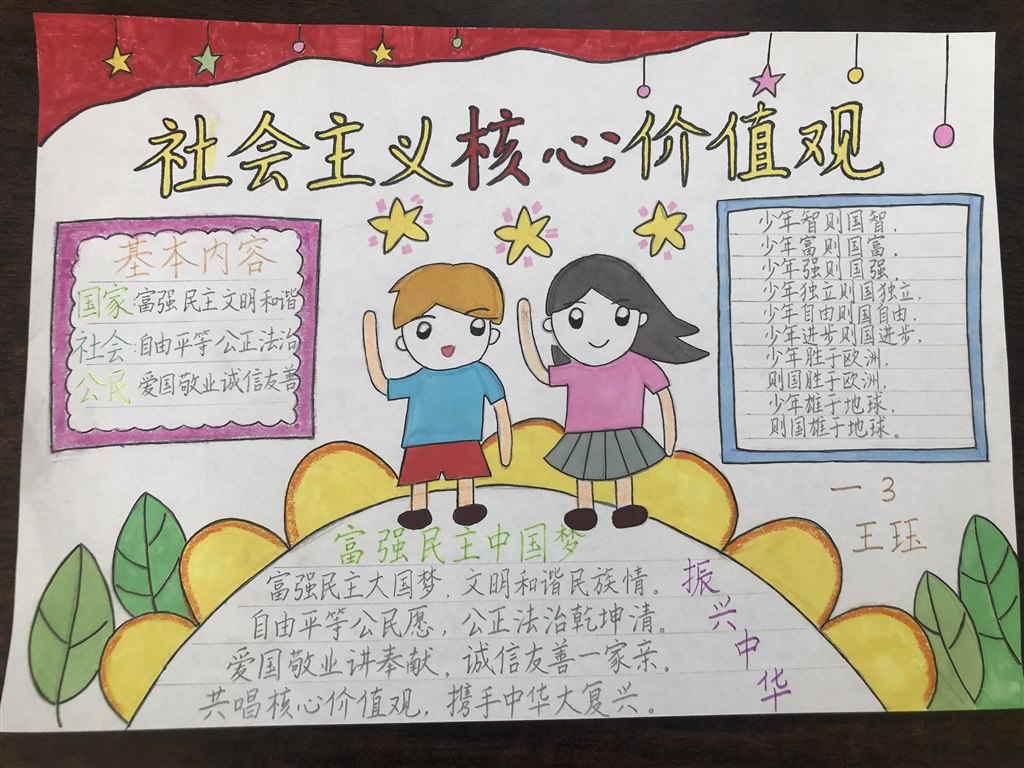 社会主义核心价值观
基本内容
国家:富强民主文明和谐
社会:自由平等公正法治
公民 爱国敬业诚信友善
少年智则国智,
少年富则国富,
少年强则国强,
少年独立则国独立,
少年自由则国自由,
少年进步则国进步,
少年胜于欧洲,
则国胜于欧洲,
少年雄于地球,
则国雄于地球。
一3
王珏
富强民主中国梦
富强民主大国梦,文明和谐民族情。
自由平等公民愿,公正法治乾坤清。
爱国敬业讲奉献,诚信友善一家亲。
共唱核心价值观,携手中华大复兴。
振兴中华